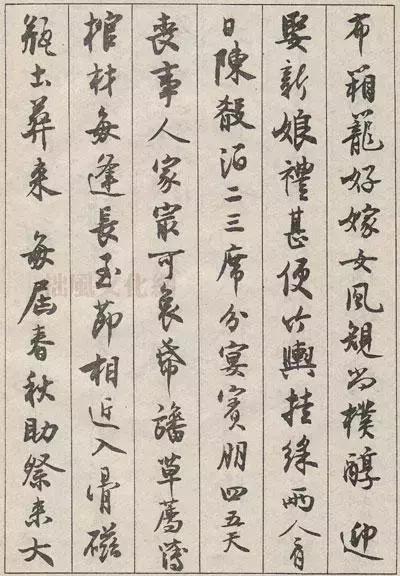 布箱籠好嫁女風規尚樸醇 迎
娶新娘禮甚便竹輿挂綵兩人肩
日陳殽酒二三席分宴賓朋四五天
喪事人家冣可哀帋旛草薦薄
棺材每逢長至節相近入骨磁
瓶土葬来 每屆春秋助祭来大